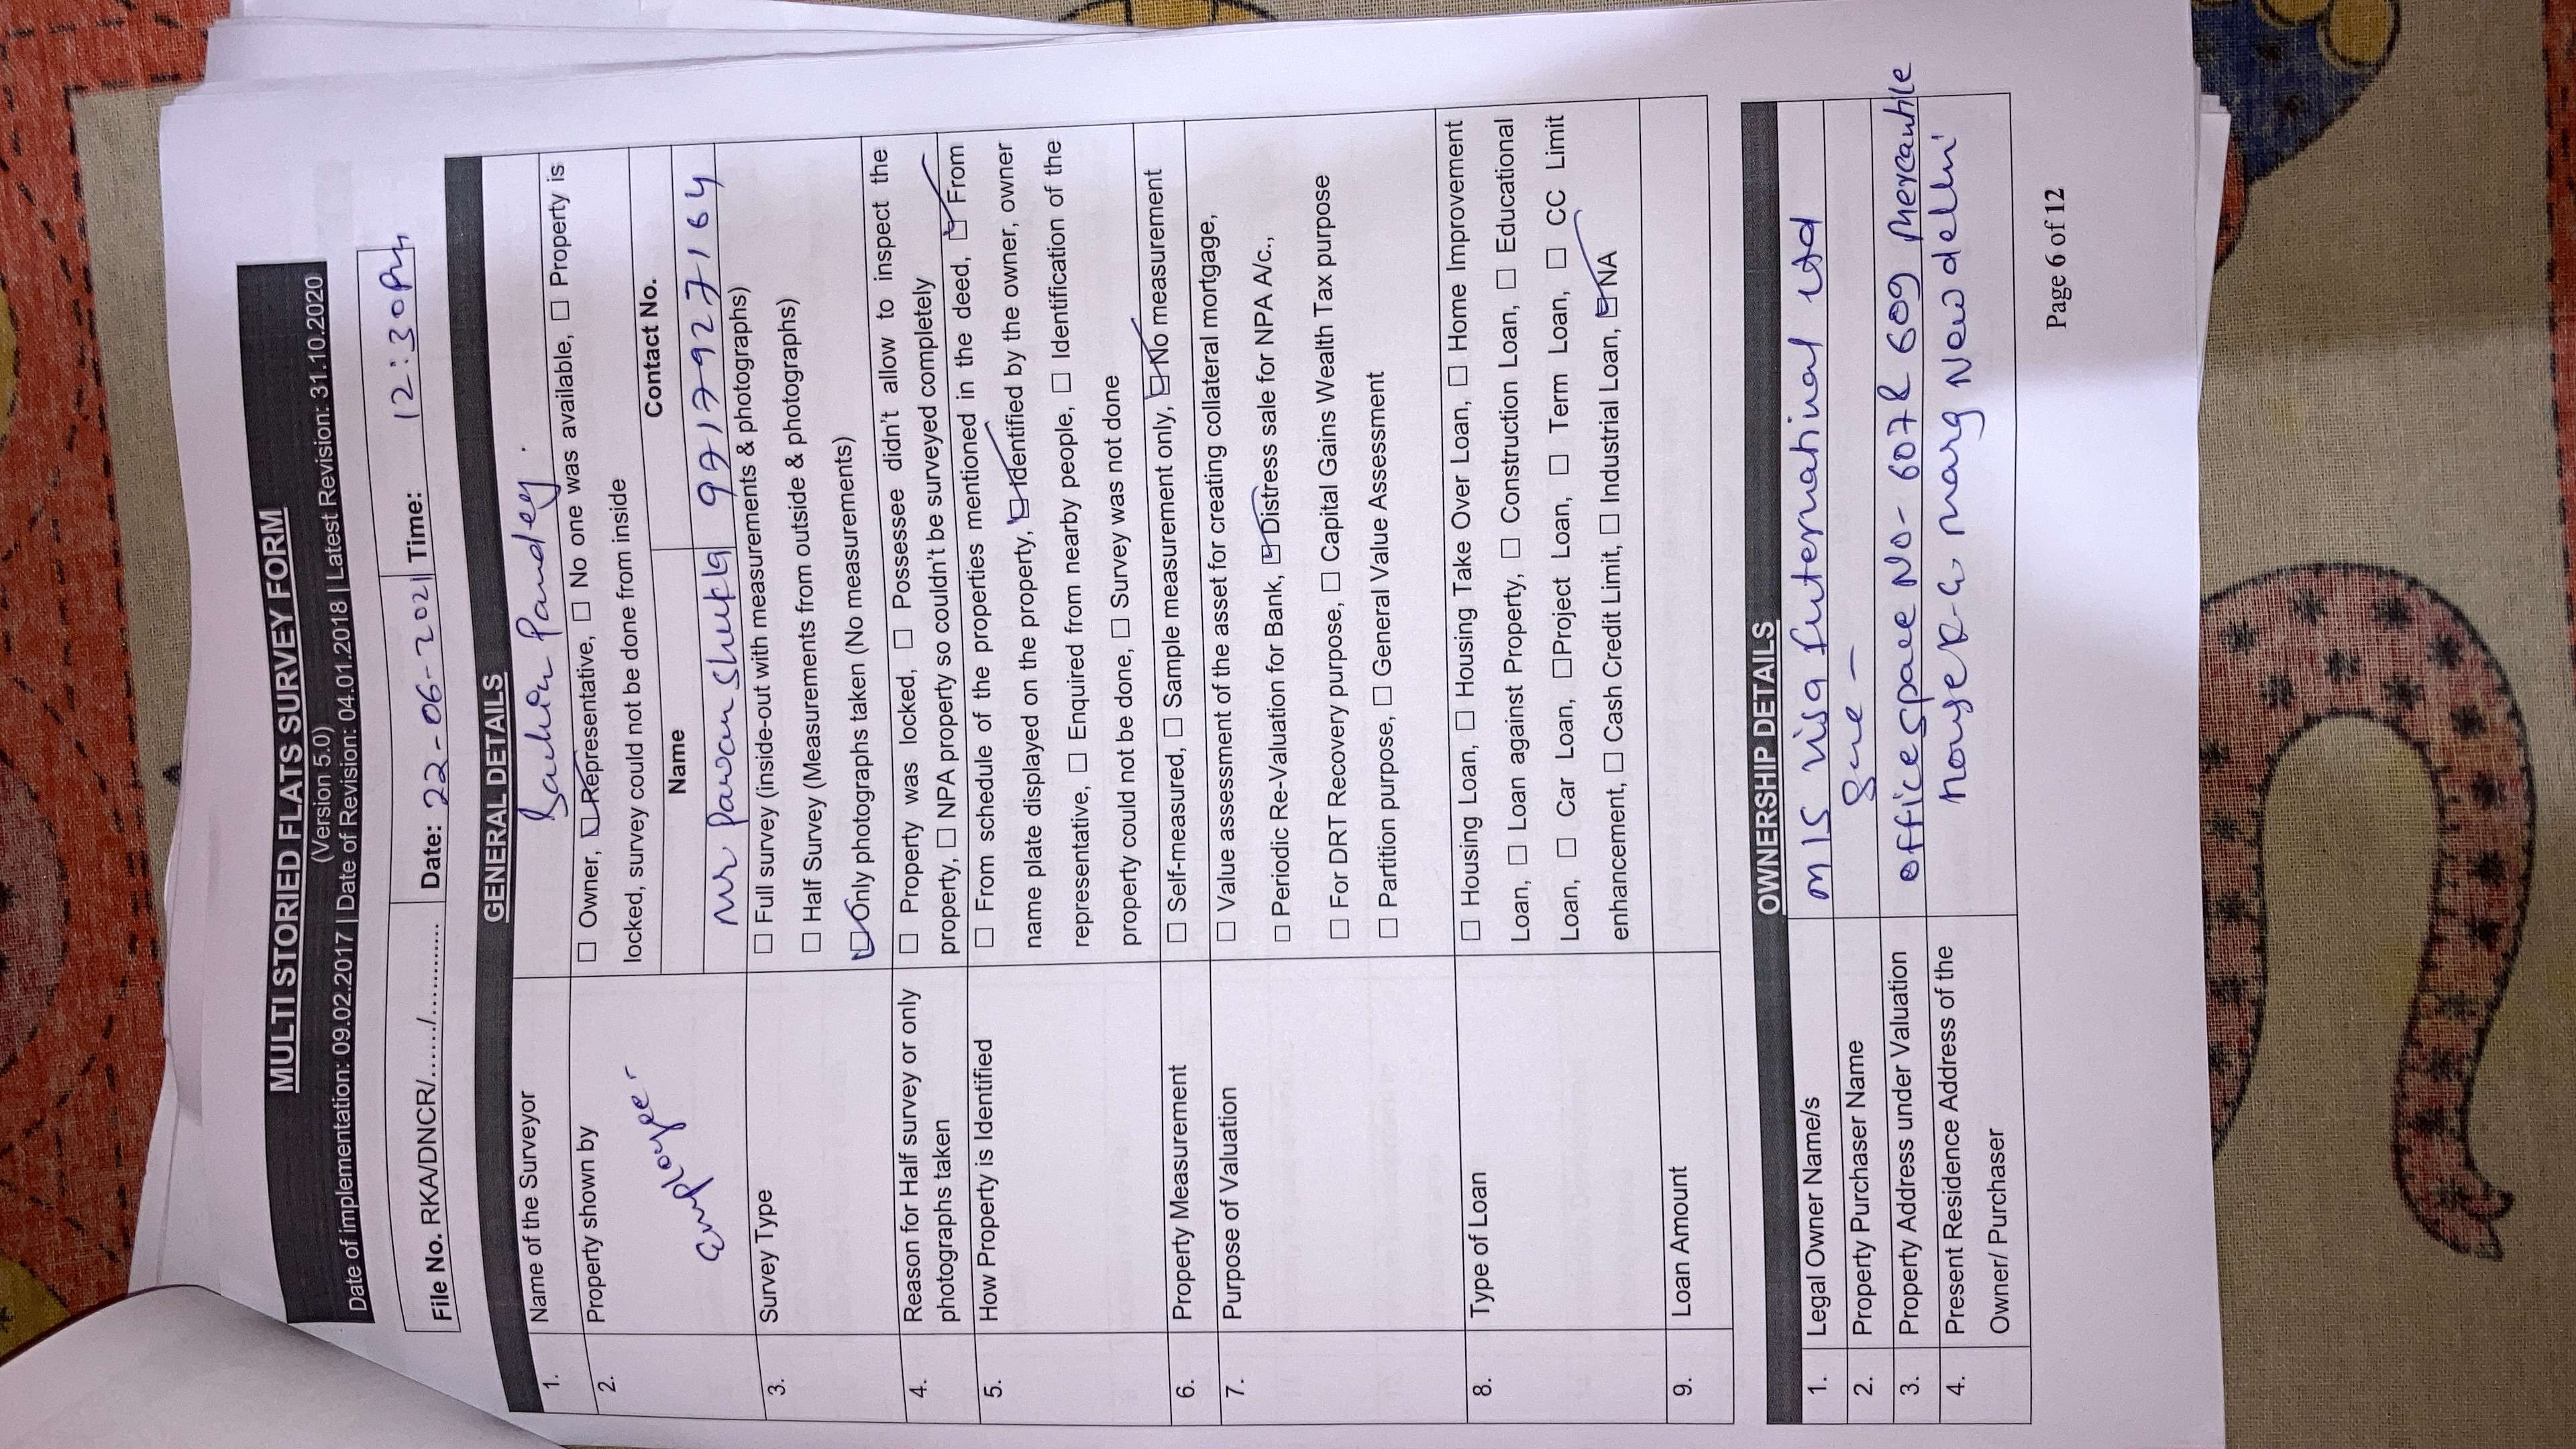 MULTI STORIED FLATS SURVEY FORM
(Version 5.0)
Date of implementation: 09.02.2017 | Date of Revision: 04.01.2018 | Latest Revision: 31.10.2020
File No. RKA/DNCR/....../........... Date: 22-06-2021 Time: 12:30 Pm
GENERAL DETAILS
1. Name of the Surveyor Sachin Pandey.
2. Property shown by ☐ Owner, ☑ Representative, ☐ No one was available, ☐ Property is
locked, survey could not be done from inside
employee
Name Contact No.
Mr Pawan Shukla 9717927164
3. Survey Type ☐ Full survey (inside-out with measurements & photographs)
☐ Half Survey (Measurements from outside & photographs)
☑ Only photographs taken (No measurements)
4. Reason for Half survey or only ☐ Property was locked, ☐ Possessee didn't allow to inspect the
photographs taken property, ☐ NPA property so couldn't be surveyed completely
5. How Property is Identified ☐ From schedule of the properties mentioned in the deed, ☑ From
name plate displayed on the property, ☑ Identified by the owner, owner
representative, ☐ Enquired from nearby people, ☐ Identification of the
property could not be done, ☐ Survey was not done
6. Property Measurement ☐ Self-measured, ☐ Sample measurement only, ☑ No measurement
7. Purpose of Valuation ☐ Value assessment of the asset for creating collateral mortgage,
☐ Periodic Re-Valuation for Bank, ☑ Distress sale for NPA A/c.,
☐ For DRT Recovery purpose, ☐ Capital Gains Wealth Tax purpose
☐ Partition purpose, ☐ General Value Assessment
8. Type of Loan ☐ Housing Loan, ☐ Housing Take Over Loan, ☐ Home Improvement
Loan, ☐ Loan against Property, ☐ Construction Loan, ☐ Educational
Loan, ☐ Car Loan, ☐ Project Loan, ☐ Term Loan, ☐ CC Limit
enhancement, ☐ Cash Credit Limit, ☐ Industrial Loan, ☑ NA
9. Loan Amount
OWNERSHIP DETAILS
1. Legal Owner Name/s M/S Visa International Ltd
2. Property Purchaser Name
3. Property Address under Valuation office space No- 607 & 609 Mercantile
4. Present Residence Address of the house K.G. marg New delhi
Owner/ Purchaser
Page 6 of 12